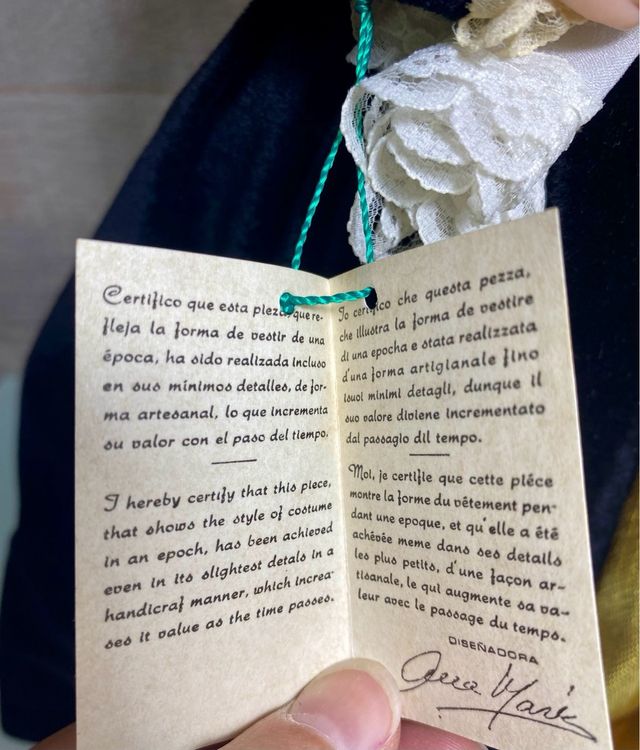 Certifico que esta pieza, que re-
fleja la forma de vestir de una
época, ha sido realizada incluso
en sus mínimos detalles, de for-
ma artesanal, lo que incrementa
su valor con el paso del tiempo.
I hereby certify that this piece,
that shows the style of costume
in an epoch, has been achieved
even in its slightest detals in a
handicraf manner, which increa-
ses it value as the time passes.
Io certifico che questa pezza,
che illustra la forma de vestire
di una epocha e stata realizzata
d'una forma artigianale fino
isuoi minimi detagli, dunque il
suo valore diviene incrementato
dal passagio dil tempo.
Moi, je certifie que cette piéce
montre la forme du vêtement pen-
dant une epoque, et qu'elle a été
achévée meme dans ses details
les plus petits, d'une façon ar-
tisanale, le qui augmente sa va-
leur avec le passage du temps.
DISEÑADORA